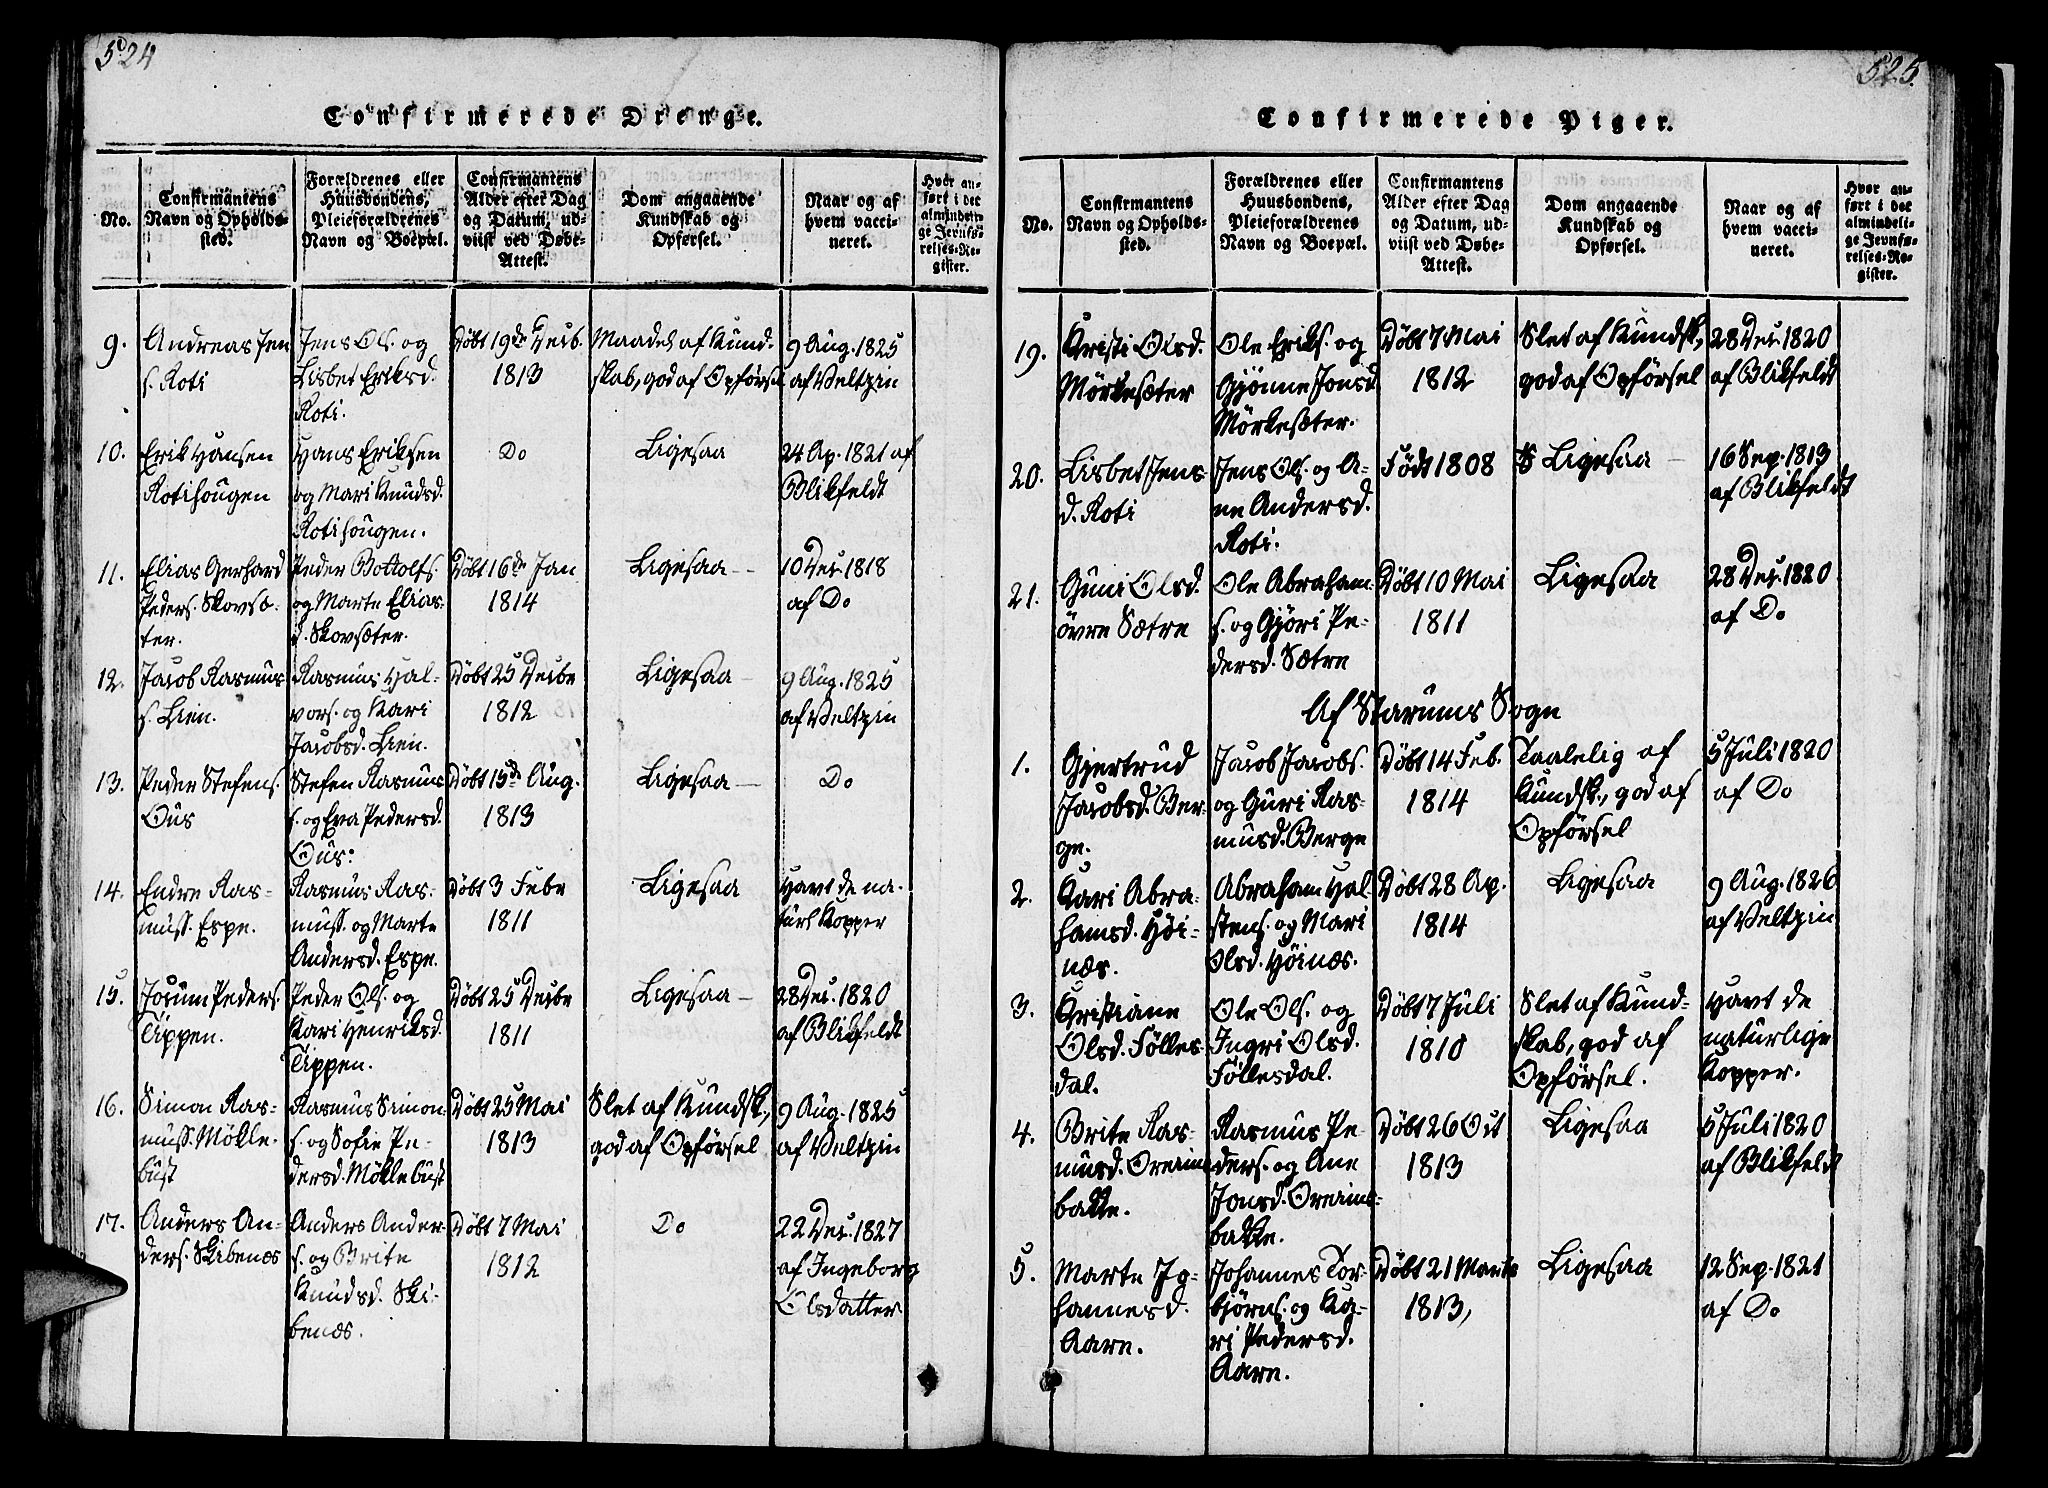 524
Confirmerede Drenge.
No.
Confirmantens
Navn og Opholds-
sted.
Forældrenes eller
Huusbondens,
Pleieforældrenes
Navn og Boepæl.
Confirmantens
Alder efter Dag
og Datum, ud-
viist ved Døbe-
Attest.
Dom angaaende
Kundskab og
Opførsel.
Naar og af
hvem vacci-
neret.
Hvor an-
ført i det
almindeli-
ge Jevnfø-
relses-Re-
gister.
9.
Andreas Jen
s. Roti
Jens Ols. og
Lisbet Eriksd.
Roti.
Døbt 19de Decb.
1813
Maadel. af Kund-
skab, god af Opførsel
9 Aug. 1825
af Veltzin
10.
Erik Hansen
Rotihougen
Hans Eriksen
og Mari Knudsd.
Rotihougen.
Do
Ligesaa
24 Ap. 1821 af
Blikfeldt
11.
Elias Gerhard
Peders. Skovsæ-
ter.
Peder Bottolfs.
og Marte Elias-
d. Skovsæter.
Døbt 16de Jan
1814
Ligesaa -
10 Dec. 1818
af Do
12.
Jacob Rasmus
s. Lien.
Rasmus Hal-
vors. og Kari
Jacobsd. Lien.
Døbt 25 Decbr
1812
Ligesaa -
9 Aug. 1825
af Veltzin
13.
Peder Stefens.
Ous
Stefen Rasmus
s. og Eva Pedersd.
Ous.
Døbt 15de Aug.
1813
Ligesaa -
Do
14.
Endre Ras-
muss. Espe.
Rasmus Ras-
muss. og Marte
Andersd. Espe.
Døbt 3 Febr
1811
Ligesaa
Havt de na-
turl Kopper
15.
Jocum Peders.
Tippen.
Peder Ols. og
Kari Henriksd.
Tippen.
Døbt 25 Decbr
1811
Ligesaa -
28 Dec. 1820
af Blikfeldt
16.
Simon Ras-
muss. Mökle-
bust
Rasmus Simon-
s. og Sofie Pe-
dersd. Möklebust
Døbt 25 Mai
1813
Slet af Kundsk.,
god af Opførsel
9 Aug. 1825
af Veltzin
17.
Anders An-
ders. Skibenæs
Anders Ander-
s. og Brite
Knudsd. Ski-
benæs.
Døbt 7 Mai
1812
Do
22 Dec. 1827
af Ingeborg
Olsdatter
525.
Confirmerede Piger.
No.
Confirmantens
Navn og Opholds-
sted.
Forældrenes eller
Huusbondens,
Pleieforældrenes
Navn og Boepæl.
Confirmantens
Alder efter Dag
og Datum, ud-
viist ved Døbe-
Attest.
Dom angaaende
Kundskab og
Opførsel.
Naar og af
hvem vacci-
neret.
Hvor an-
ført i det
almindeli-
ge Jevnfø-
relses-Re-
gister.
19.
Kristi Olsd.
Mörkesæter
Ole Eriks. og
Gjönne Jonsd.
Mörkesæter.
Døbt 7 Mai
1812
Slet af Kundsk.,
god af Opførsel
28 Dec. 1820
af Blikfeldt
20.
Lisbet Jens
d. Roti
Jens Ols. og A-
ne Andersd.
Roti.
Født 1808
Ligesaa -
16 Sep. 1813
af Blikfeldt
21.
Guni Olsd.
övre Sætre
Ole Abraham-
s. og Gjöri Pe-
dersd. Sætre
Døbt 10 Mai
1811
Ligesaa
28 Dec. 1820
af Do
Af Starums Sogn
1.
Gjertrud
Jacobsd. Ber-
ge.
Jacob Jacobs.
og Guri Ras-
musd. Berge
Døbt 14 Feb.
1814
Taalelig af
Kundsk., god af
Opförsel
5 Juli 1820
af Do
2.
Kari Abra-
hamsd. Höi-
næs.
Abraham Hal
stens. og Mari
Olsd. Höinæs.
Døbt 28 Ap.
1814
Ligesaa
9 Aug. 1826
af Veltzin
3.
Kristiane
Olsd. Fölles-
dal.
Ole Ols. og
Ingri Olsd.
Föllesdal.
Døbt 7 Juli
1810
Slet af Kund-
skab, god af
Opförsel.
Havt de
naturlige
Kopper.
4.
Brite Ras-
musd.
bakke.
Rasmus Pe-
ders. og Ane
Jonsd.
bakke.
Døbt 26 Oct
1813
Ligesaa
5 Juli 1820
af Blikfeldt
5.
Marte Jo-
hannesd.
Aarn.
Johannes Tor-
björns. og Ka-
ri Pedersd.
Aarn.
Døbt 21 Marts
1813,
Ligesaa
12 Sep. 1821
af Do